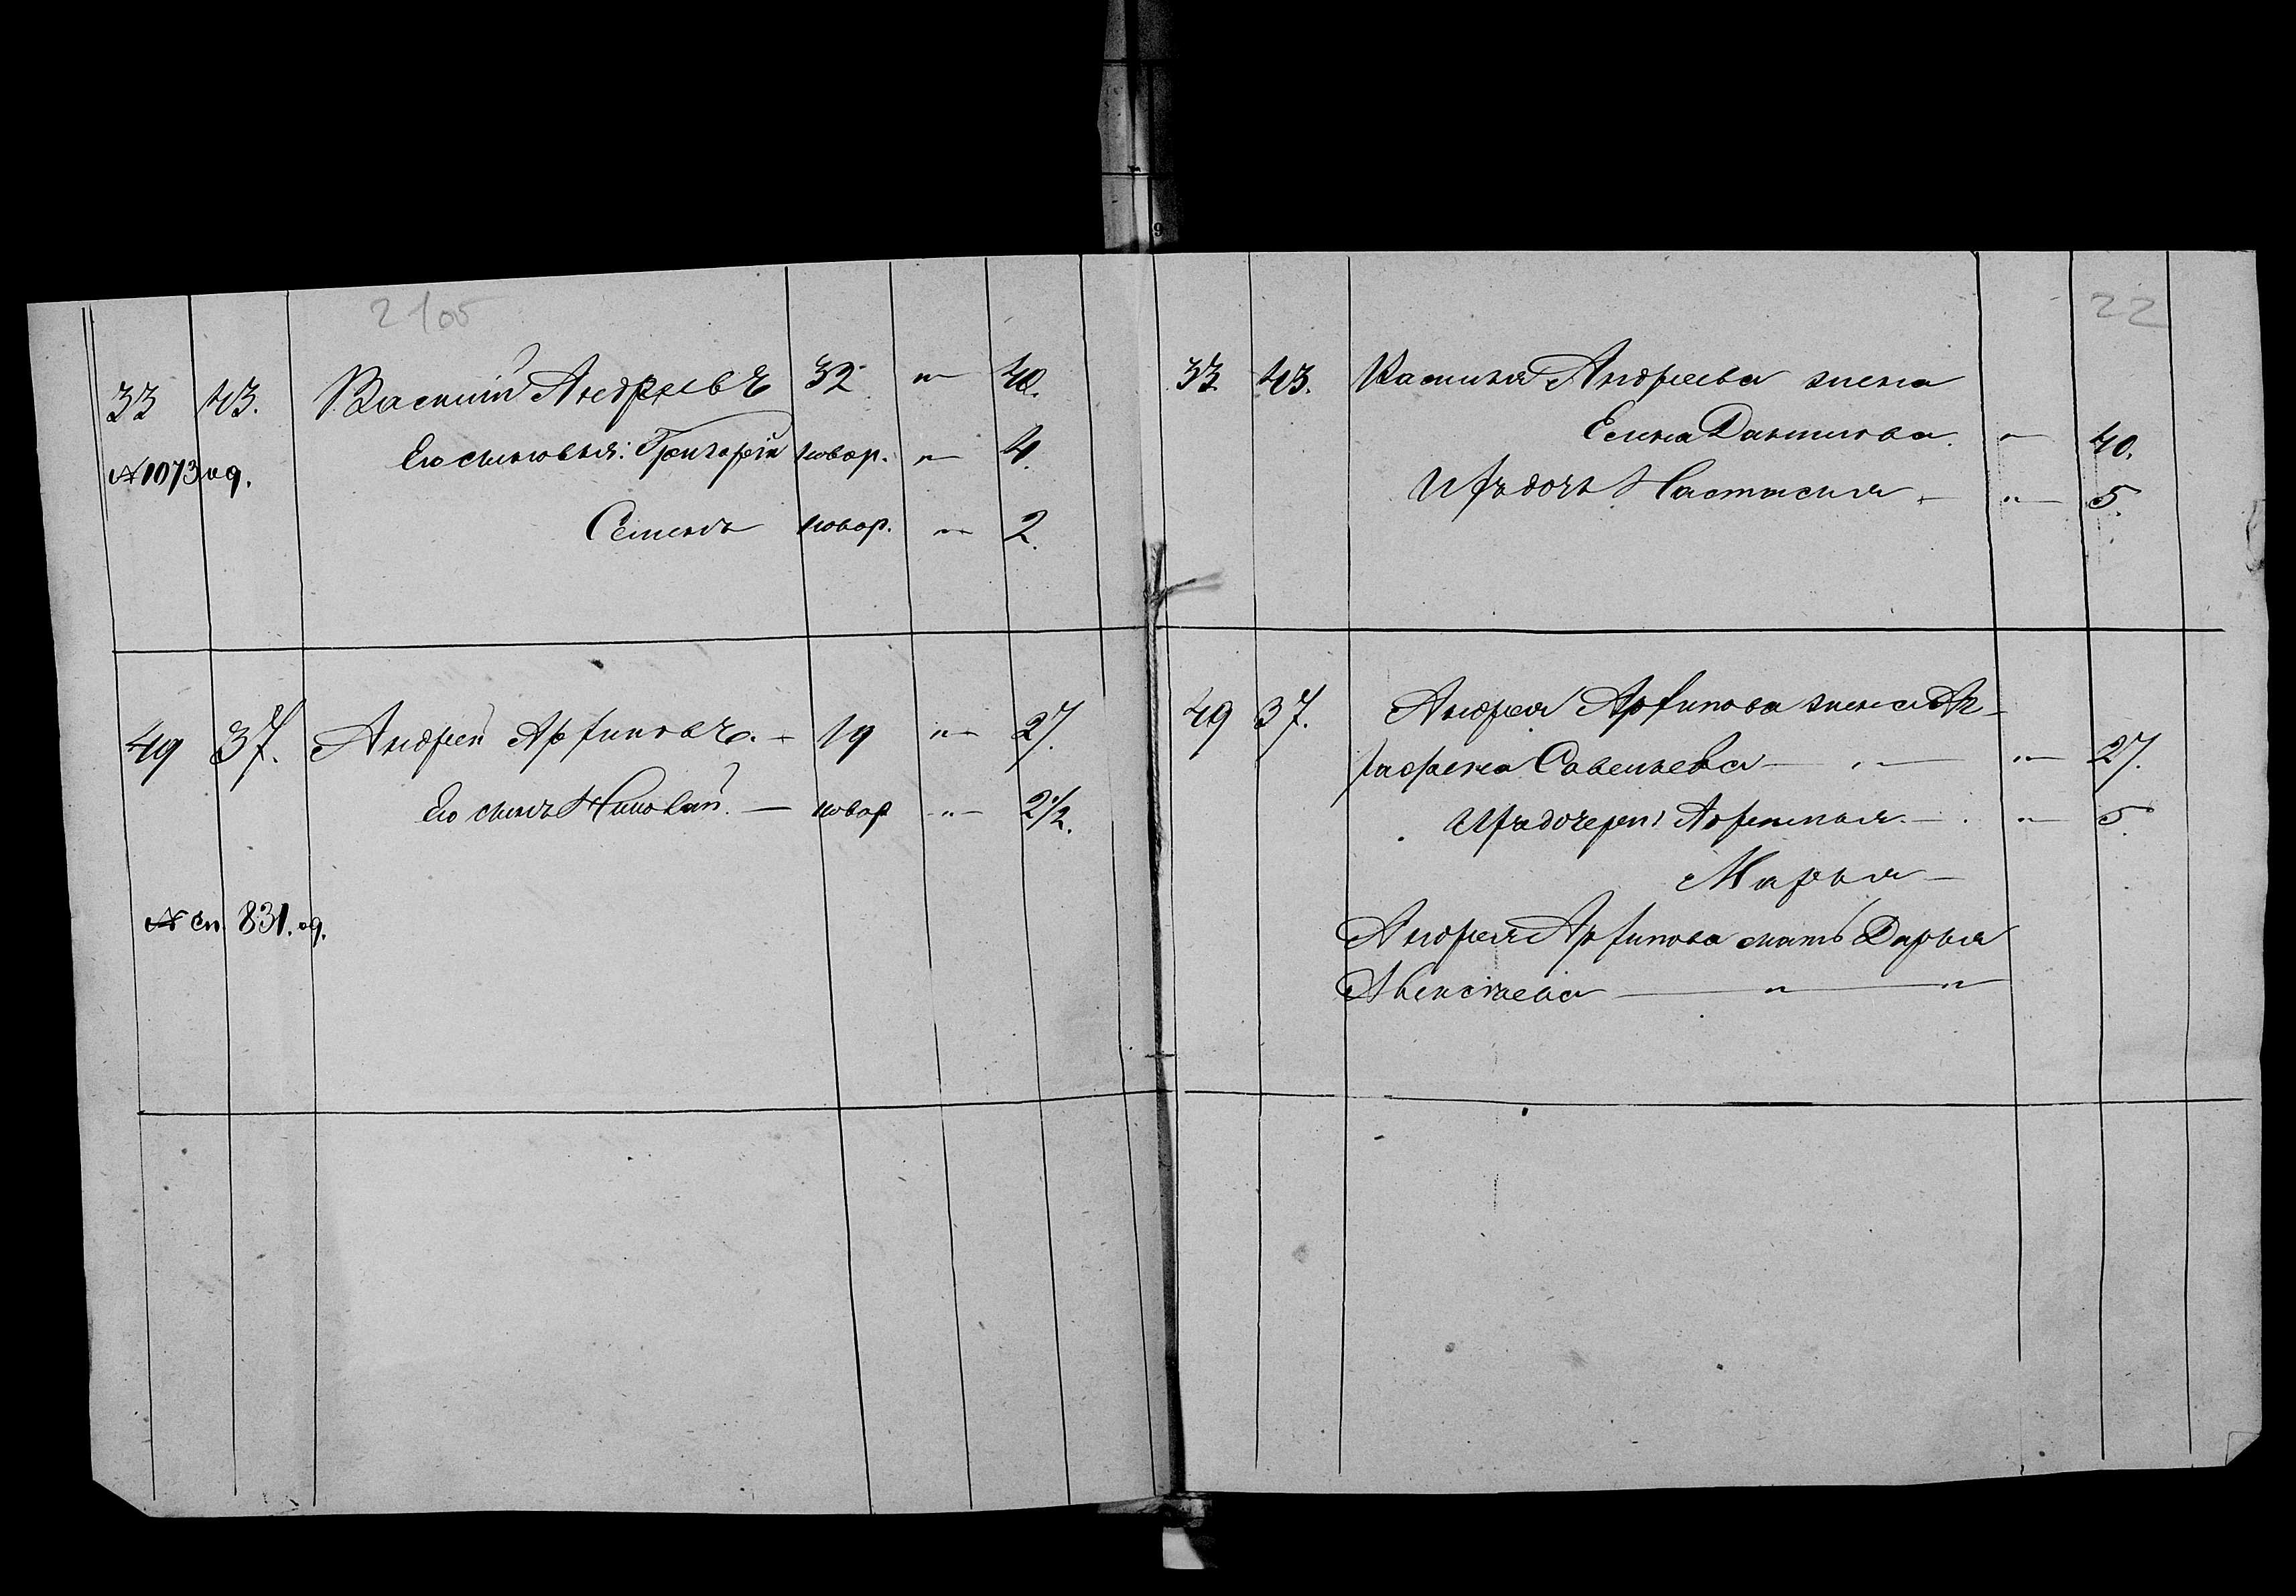 2 1об
33 43. Василій Андреевъ 32 " 40.
Его сыновья: Григорій новор. " 4.
№ 1073 ид.
Семенъ новор. " 2.
49 37. Андрей Архиповъ. - 19 " 27.
Его сынъ Николай. — новор " 2 1/2.
№ сп. 831. ид.
22
33 43. Василия Андреева жена
Елена Данилова. " 40.
Ихъ дочь Настасия - " 5.
49 37. Андрея Архипова жена Аг-
рафена Савельева — " — " 27.
Ихъ дочери: Афимья. — " 5.
Марья —
Андрея Архипова мать Дарья
Алексѣева — " — "
9